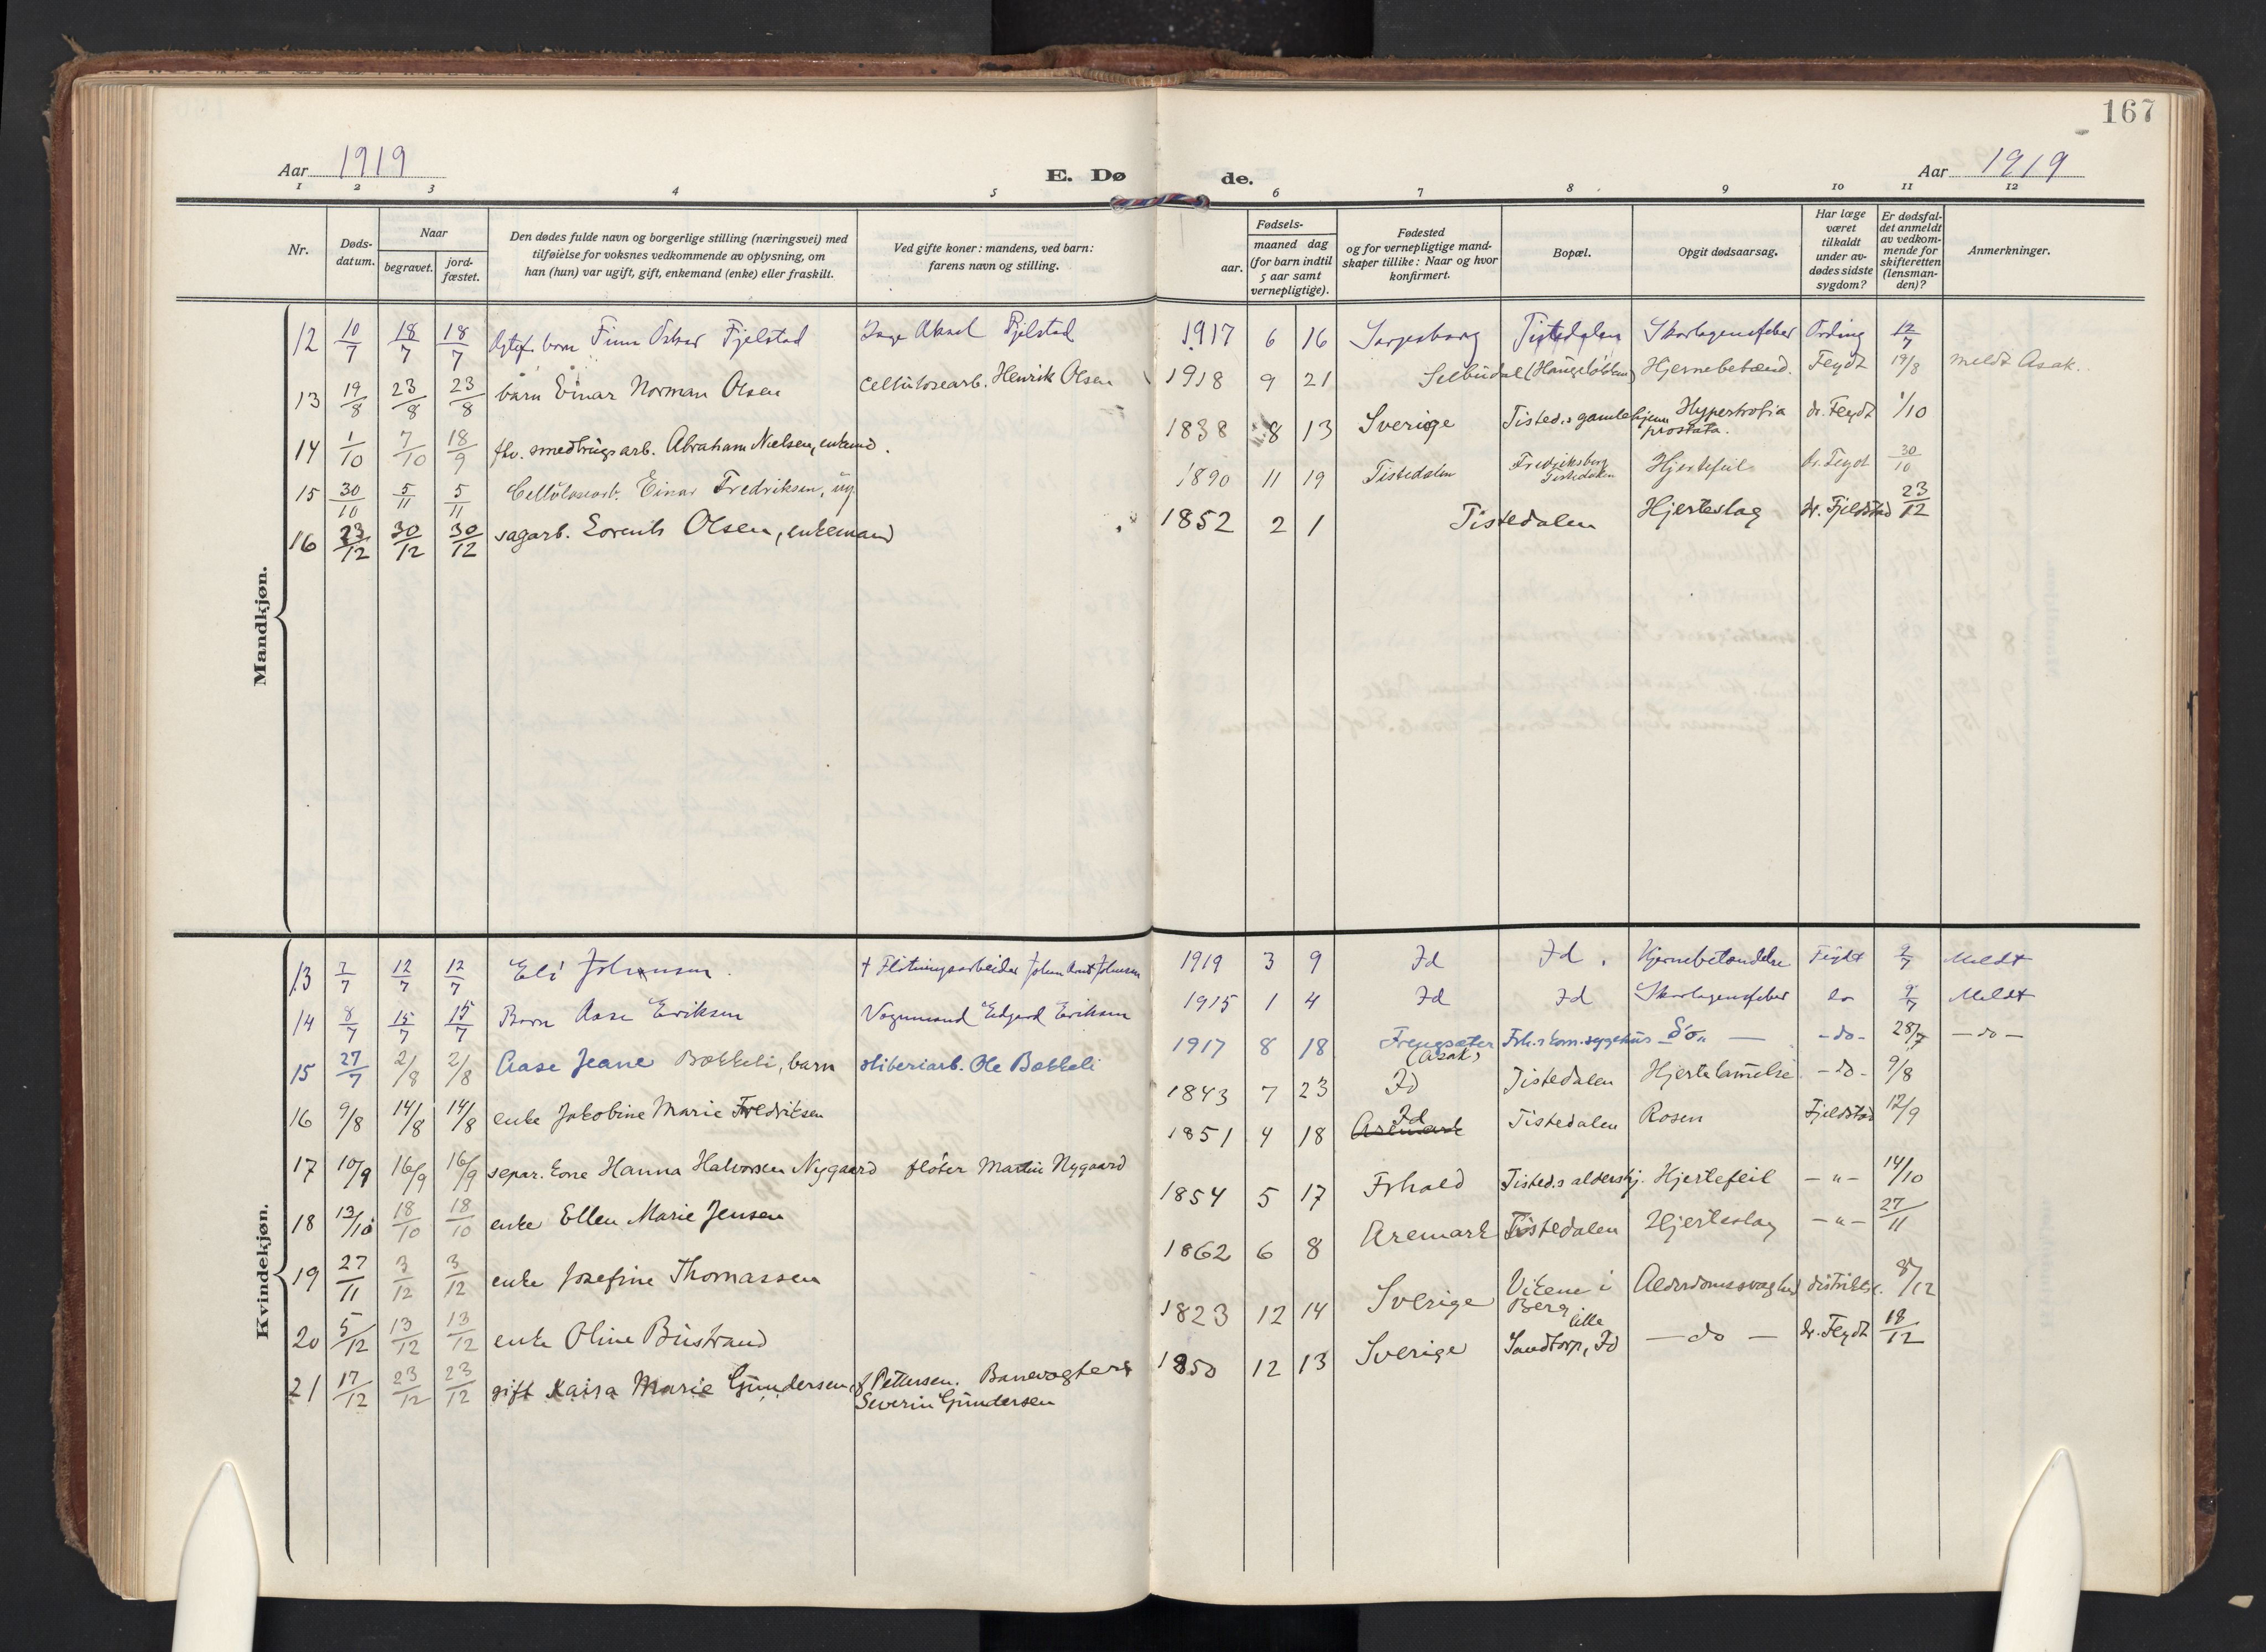 167
Aar 1919
E. Dø
de.
Aar 1919
1 2 3 4 5 6 7 8 9 10 11 12
Nr.
Døds-
datum.
Naar
begravet.
jord-
fæstet.
Den dødes fulde navn og borgerlige stilling (næringsvei) med
tilføielse for voksnes vedkommende av oplysning, om
han (hun) var ugift, gift, enkemand (enke) eller fraskilt.
Ved gifte koner: mandens, ved barn:
farens navn og stilling.
Fødsels-
aar.
maaned dag
(for barn indtil
5 aar samt
vernepligtige).
Fødested
og for vernepligtige mand-
skaper tillike: Naar og hvor
konfirmert.
Bopæl.
Opgit dødsaarsag.
Har læge
været
tilkaldt
under av-
dødes sidste
sygdom?
Er dødsfal-
det anmeldt
av vedkom-
mende for
skifteretten
(lensman-
den)?
Anmerkninger.
Mandkjøn.
12 10/7 18/7 18/7 barn Finn Oskar Fjelstad Aksel Fjelstad 1917 6 16 Sarpsborg Tistedalen Skarlagensfeber Ording 12/7
13 19/8 23/8 23/8 barn Einar Norman Olsen Cellulosearb. Henrik Olsen 1918 9 21 Hjernebetænd. Feydt 19/8 meldt Asak.
14 1/10 7/10 18/9 fhv. smedbrugsarb. Abraham Nielsen, enkemd. 1838 8 13 Sverige Tisted.s gamlehjem Hypertrofia prostata. dr. Feydt 1/10
15 30/10 5/11 5/11 Cellulosearb. Einar Fredriksen, ug. 1890 11 19 Tistedalen Fredriksborg Tistedalen Hjertefeil dr. Feydt 30/10
16 23/12 30/12 30/12 sagarb. Lorents Olsen, enkemand 1852 2 1 Tistedalen Hjerteslag dr. Fjeldstad 23/12
Kvindekjøn.
13 7/7 12/7 12/7 Eli Johansen. + Fløtningsarbeider Johan Johansen 1919 3 9 Id Id. Hjernebetændelse Feydt 9/7 Meldt
14 8/7 15/7 15/7 Barn Aase Eriksen Vognmand Edgard Eriksen 1915 1 4 Id Id Skarlagensfeber do 9/7 Meldt
15 27/7 2/8 2/8 Aase Jeane Bakkeli, barn sliberiarb. Ole Bakkeli 1917 8 18 (Asak) Frh.s kom. sygehus - Do - - do - 28/7 - do -
16 9/8 14/8 14/8 enke Jakobine Marie Fredriksen 1843 7 23 Id Tistedalen Hjertelamelse - do - 9/8
17 10/9 16/9 16/9 separ. kone Hanna Halvorsen Nygaard fløter Martin Nygaard 1851 4 18 Id Aremark Tistedalen Rosen Fjeldstad 12/9
18 13/10 18/10 18/10 enke Ellen Marie Jensen 1854 5 17 Frhald Tisted.s aldershj. Hjertefeil - " - 14/10
19 27/11 3/12 3/12 enke Josefine Thomassen 1862 6 8 Aremark Tistedalen Hjerteslag - " - 27/11
20 5/12 13/12 13/12 enke Oline Bustrand 1823 12 14 Sverige Vikene i Berg Alderdomssvaghed distriktsl. 8/12
21 17/12 23/12 23/12 gift Kaisa Marie Gundersen, f. Pettersen. Banevogter Severin Gundersen 1850 12 13 Sverige lille Sandtorp, Id - do - dr. Feydt 18/12